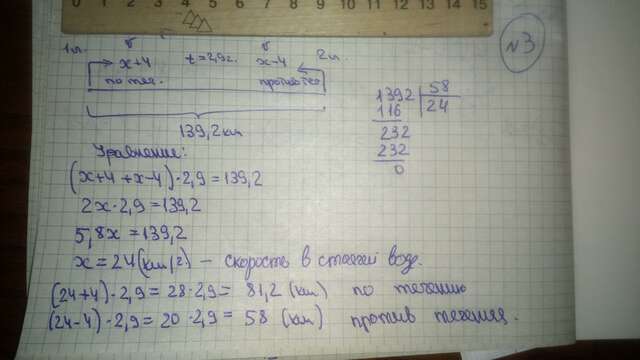 0 1 2 3 4 5 6 7 8 9 10 11 12 13 14 15
№3
1л. v v 2л.
x+4 t=2,9г. x-4
по теч. против теч
139,2 км
1392 | 58
116 24
232
232
0
Уравнение:
(x+4+x-4)·2,9=139,2
2x·2,9=139,2
5,8x=139,2
x=24(км/г.) – скорость в стоячей воде.
(24+4)·2,9=28·2,9= 81,2 (км) по течению
(24-4)·2,9=20·2,9= 58 (км) против течения.